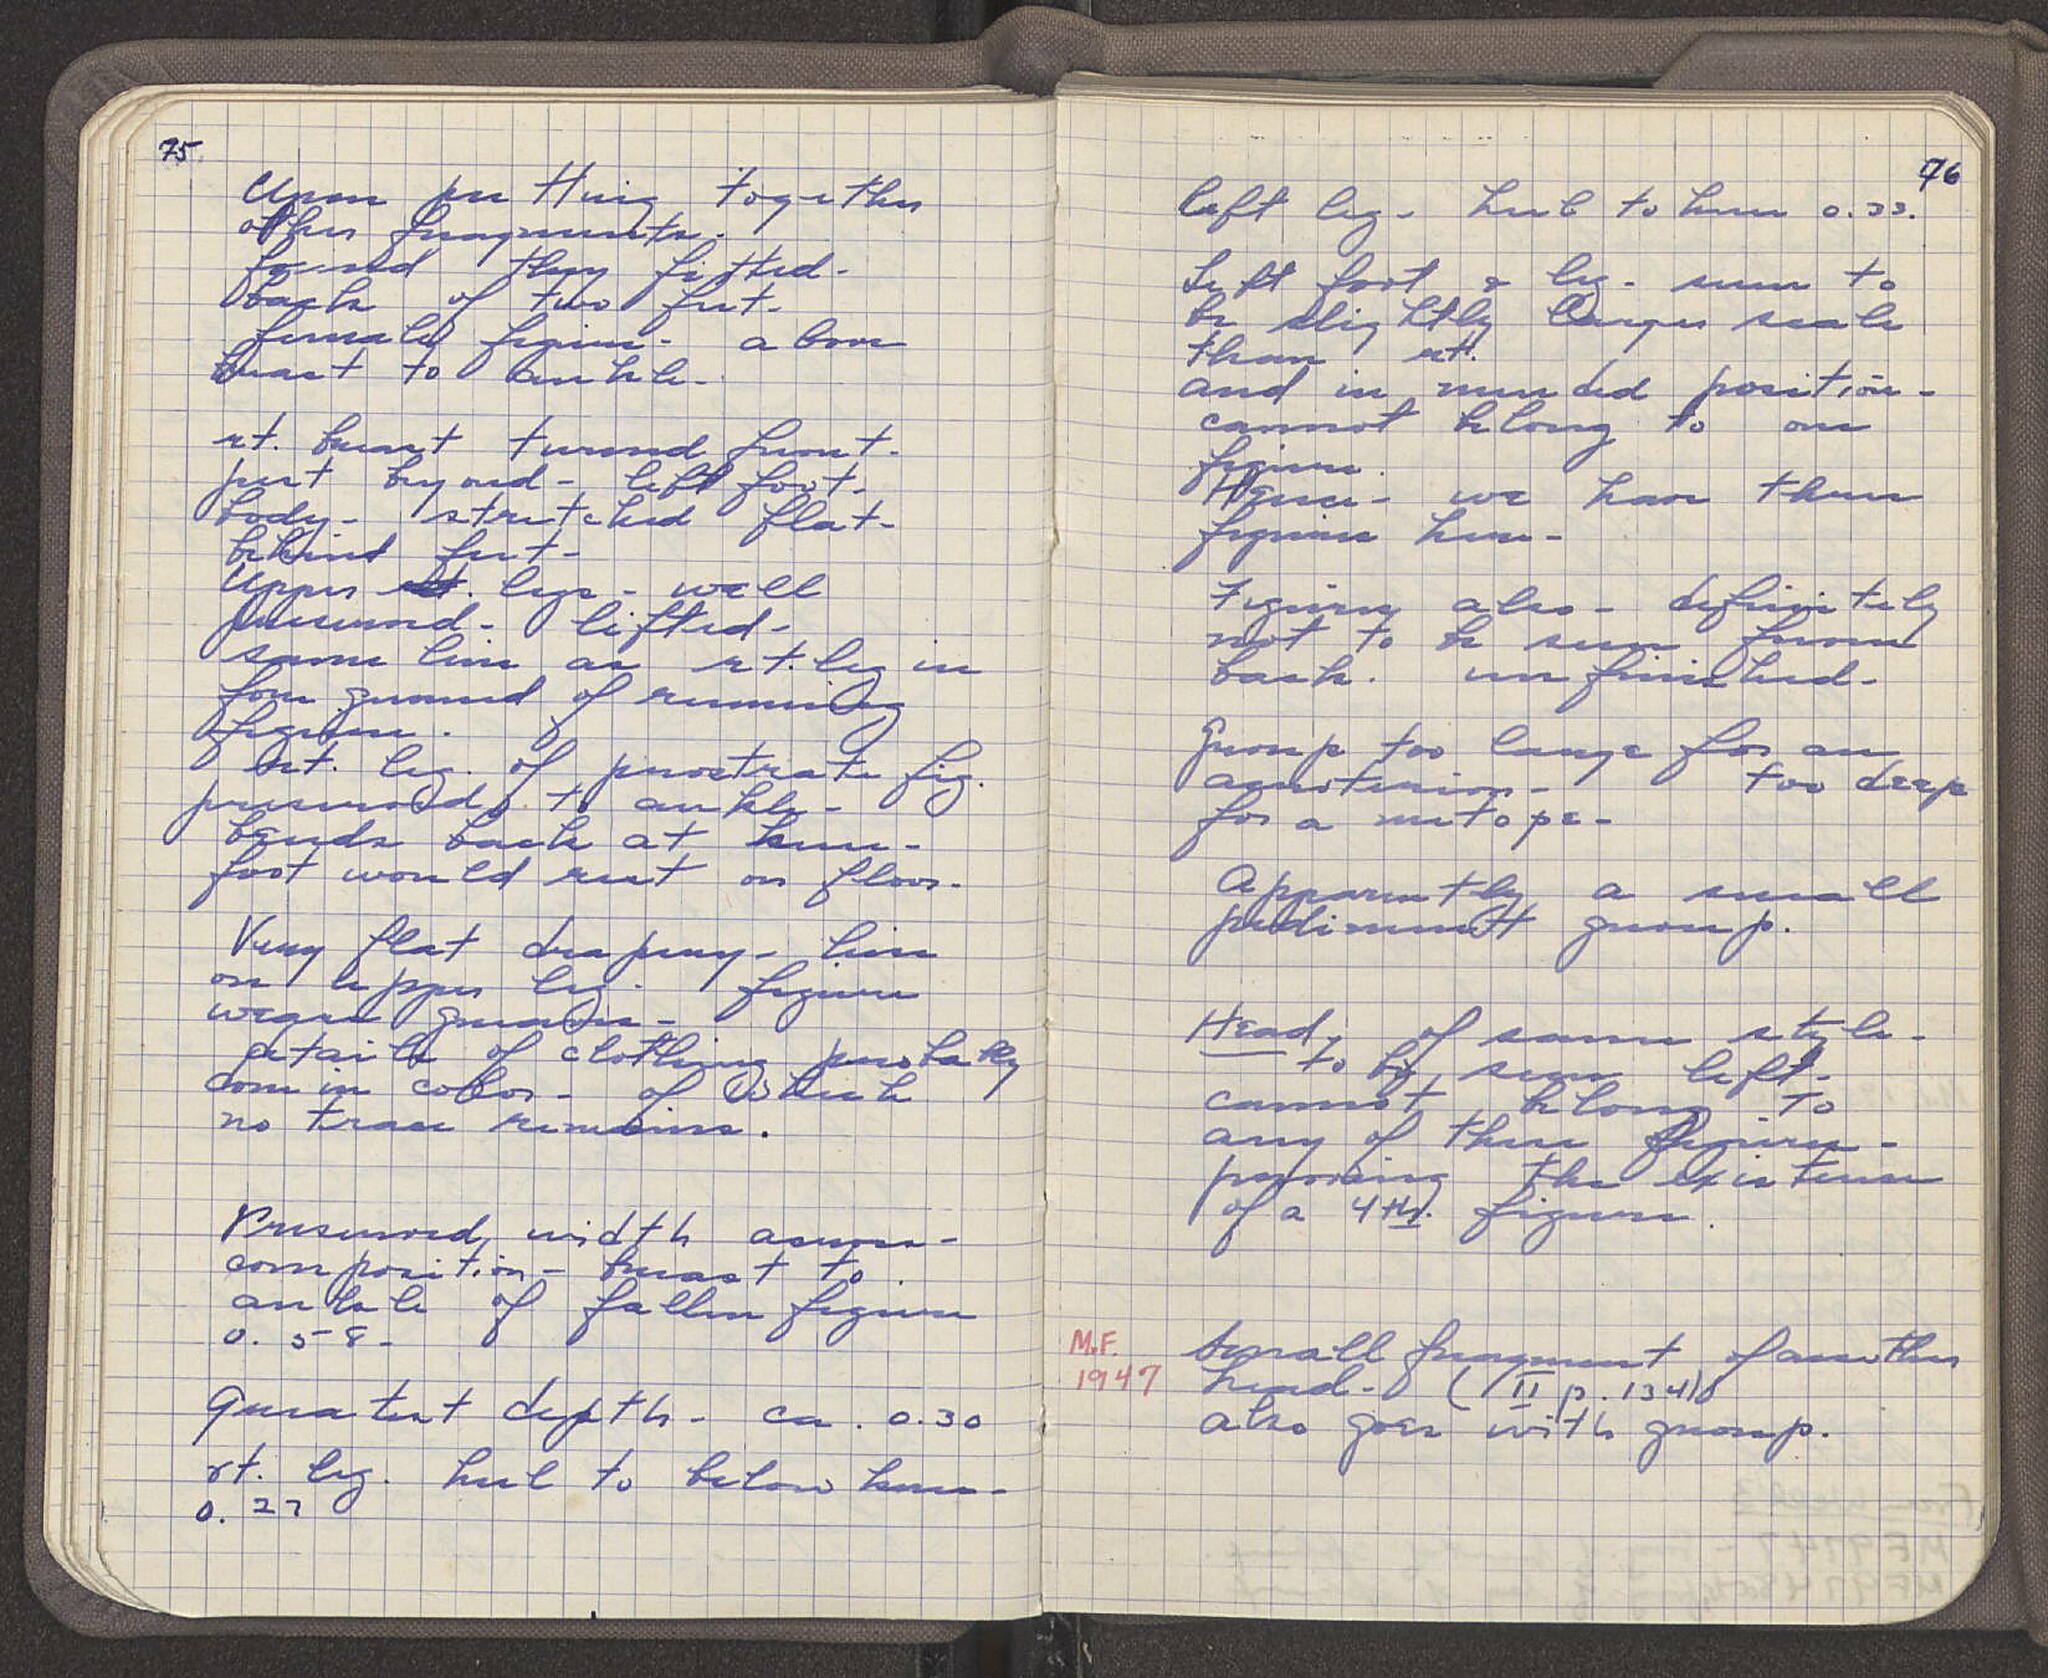 75
Upon putting together
other fragments.
found they fitted -
back of two feet.
female figure - above
breast to ankle -
rt. breast turned front.
just beyond - left foot -
body - stretched flat -
behind feet -
Upper legs - well
preserved - lifted -
same line as rt. leg in
foreground of running
figure.
rt. leg. of prostrate fig.
preserved to ankle -
bends back at knee -
foot would rest on floor -
Very flat drapery - line
on upper leg. figure
wears greaves -
details of clothing probably
done in color - of which
no trace remains.
Preserved width across -
composition - breast to
ankle of fallen figure
0.58 -
Greatest depth - ca. 0.30
rt. leg. heel to below knee -
0.27
76
left leg - heel to knee 0.33.
Left foot & leg - seem to
be slightly larger scale
than rt.
and in needed position -
cannot belong to one
figure.
Hence - we have three
figures here -
Figures also - definitely
not to be seen from
back. unfinished -
Group too large for an
acroterion - too deep
for a metope -
Apparently a small
pediment group.
Head, of same style -
to be seen left -
cannot belong to
any of these figures -
proving the existence
of a 4th. figure.
M.F.
1947
Small fragment of another
head - (II p. 134)
also goes with group.